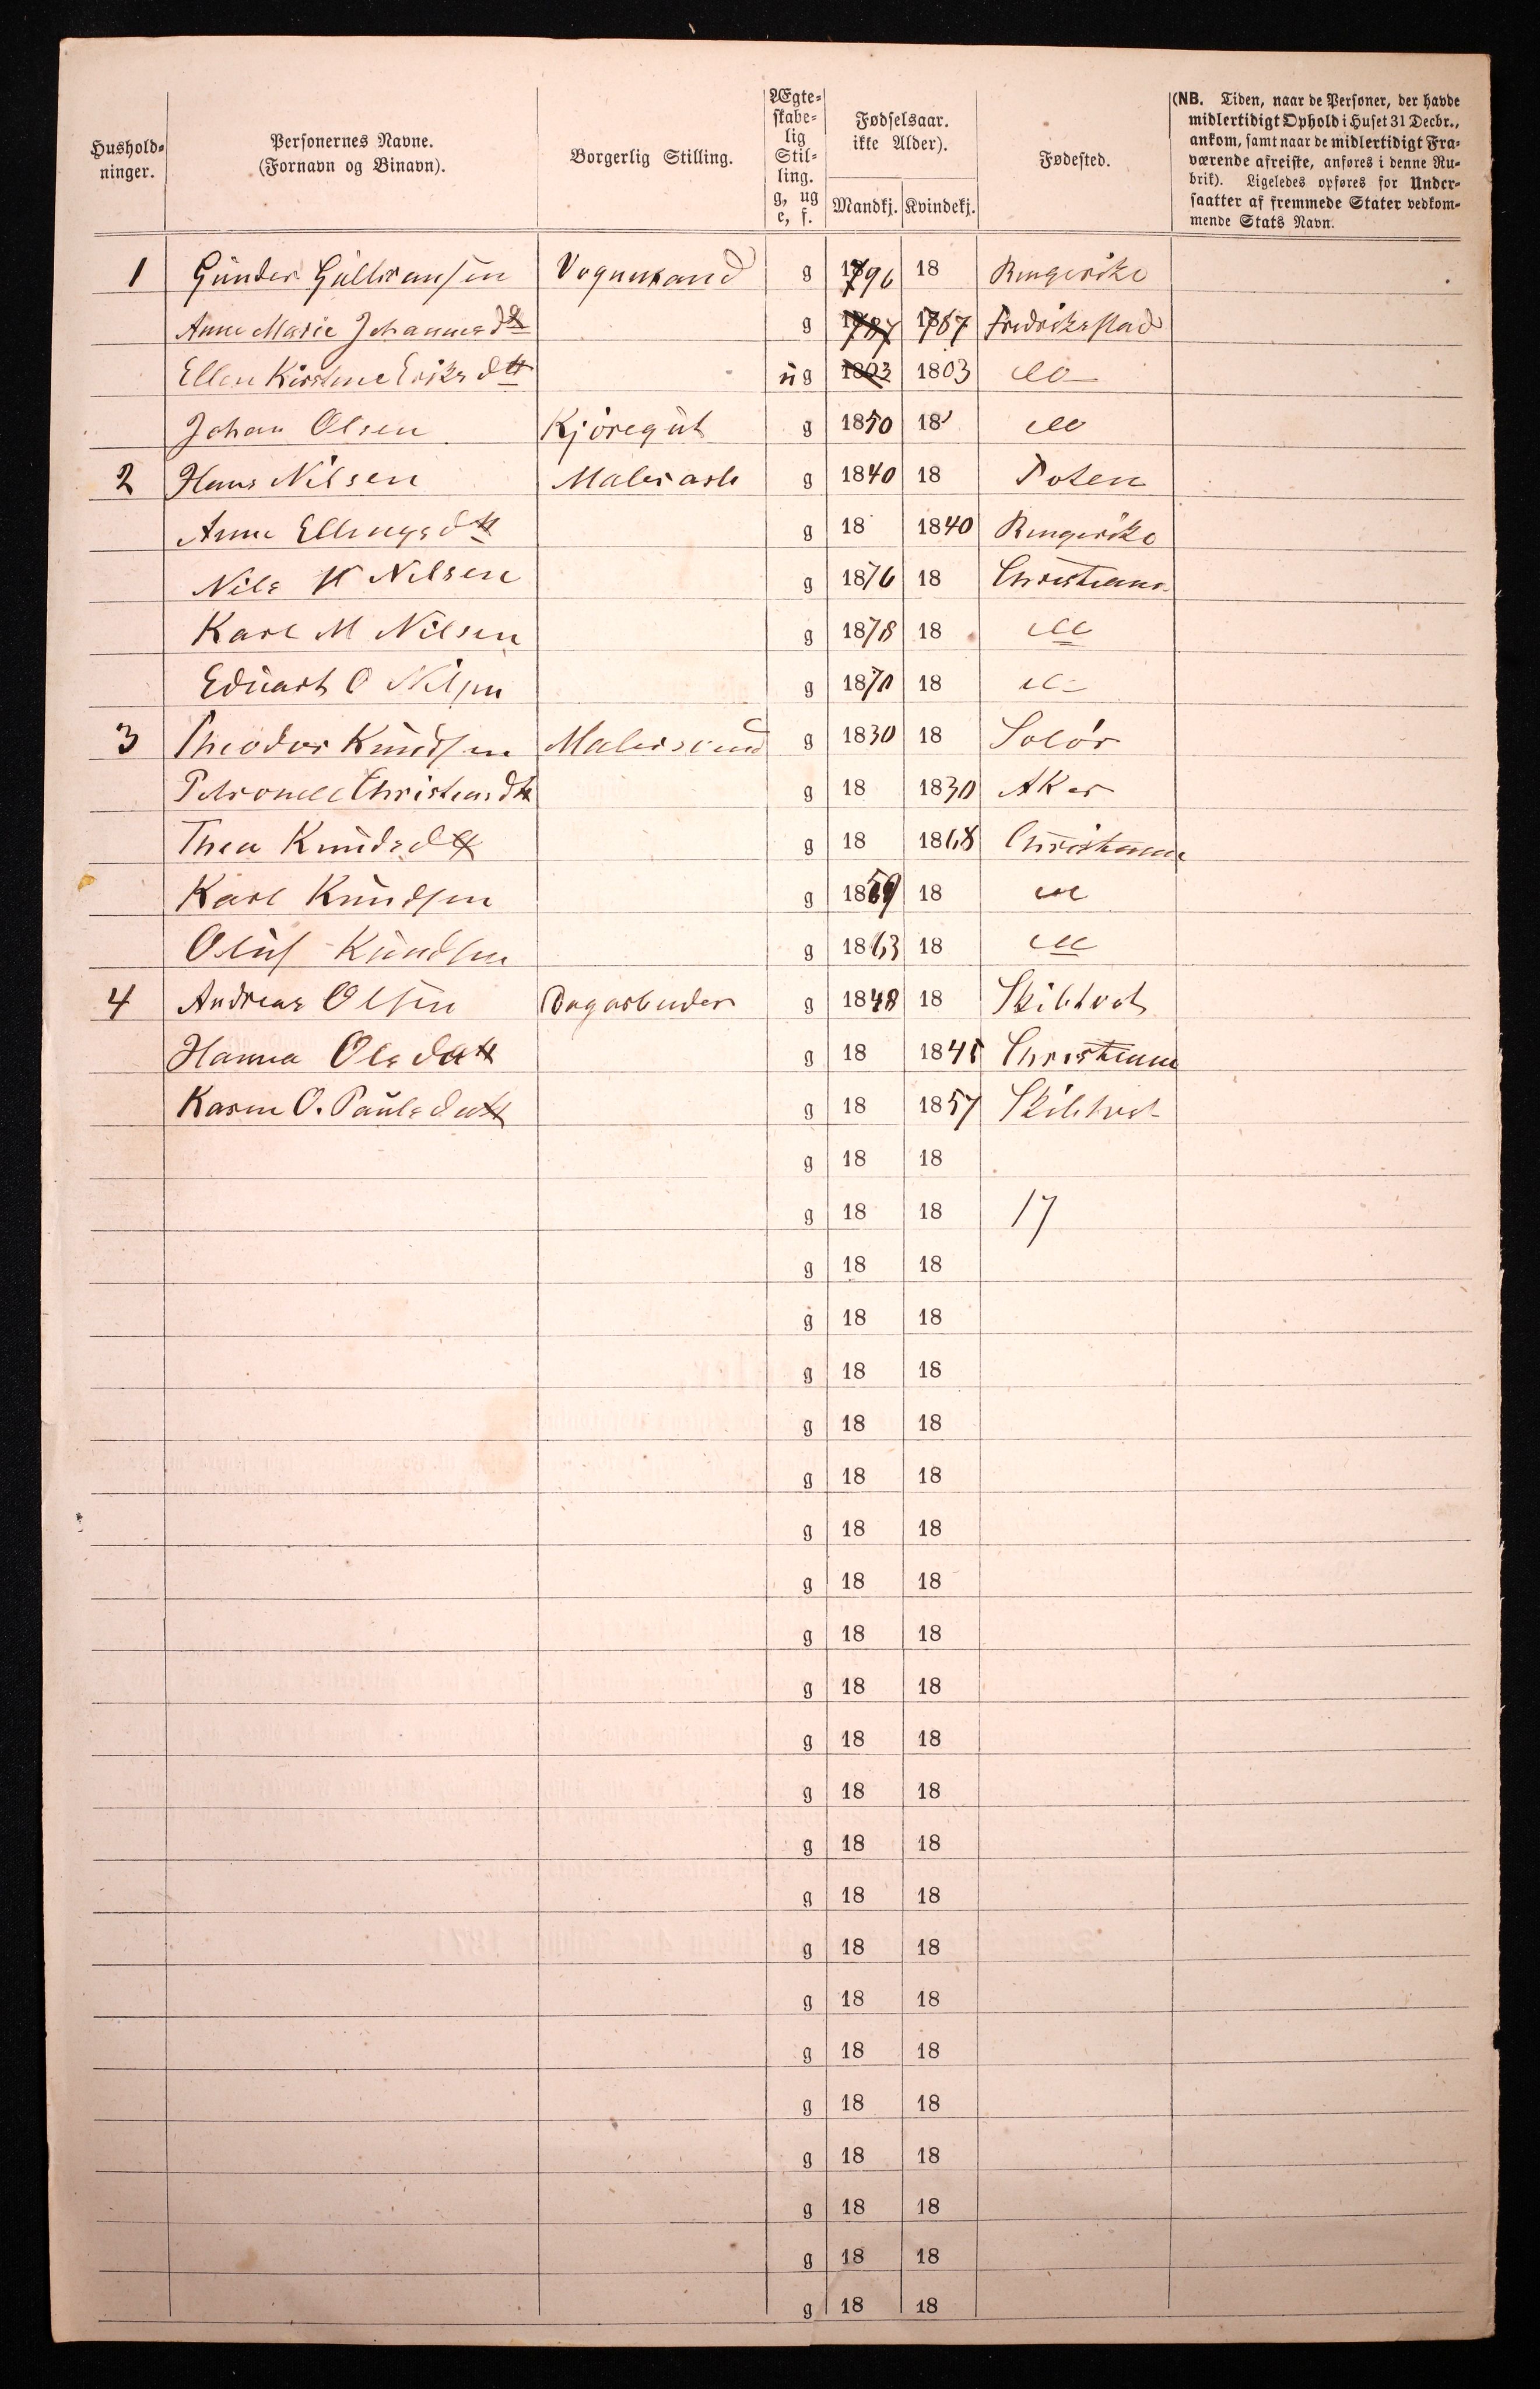 Hushold-
ninger.
Personernes Navne.
(Fornavn og Binavn).
Borgerlig Stilling.
Ægte-
skabe-
lig
Stil-
ling.
g, ug
e, f.
Fødselsaar.
ikke Alder).
Mandkj. Kvindekj.
Fødested.
(NB. Tiden, naar de Personer, der havde
midlertidigt Ophold i Huset 31 Decbr.,
ankom, samt naar de midlertidigt Fra-
værende afreiste, anføres i denne Ru-
brik). Ligeledes opføres for Under-
saatter af fremmede Stater vedkom-
mende Stats Navn.
1 Gunder Gulbransen Vognmand g 1796 18 Ringerike
Anne Marie Johannesdtt g 1787 1787 Fredrikstad
Ellen Kirstine Eriksdtt ug 1803 1803 do
Johan Olsen Kjøregut g 1850 18 do
2 Hans Nilsen g 1840 18 Toten
Anne Ellingsdtt g 18 1840 Ringerike
Nils H Nilsen g 1876 18 Christiania
Karl M Nilsen g 1878 18 do
Eduart O Nilsen g 1870 18 do
3 Theodor Knudsen g 1830 18 Solør
Petronelle Christiansdtt g 18 1830 Aker
Thea Knudsdtt g 18 1868 Christiania
Karl Knudsen g 1859 18 do
Oluf Knudsen g 1863 18 do
4 Andreas Olsen Dagarbeider g 1848 18 Skibtvet
Hanna Olsdatt g 18 1845 Christiania
Karen O. Paulsdatt g 18 1857 Skibtvet
g 18 18
g 18 18 17
g 18 18
g 18 18
g 18 18
g 18 18
g 18 18
g 18 18
g 18 18
g 18 18
g 18 18
g 18 18
g 18 18
g 18 18
g 18 18
g 18 18
g 18 18
g 18 18
g 18 18
g 18 18
g 18 18
g 18 18
g 18 18